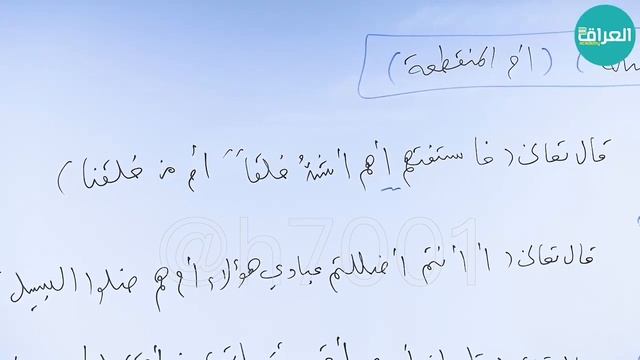 العراقية
academy
( أم المنقطعة )
قال تعالى ( فاستفتهم أهم أشدُّ خلقاً أم من خلقنا )
@h7001
قال تعالى ( أأنتم أضللتم عبادي هؤلاء أم هم ضلوا السبيل